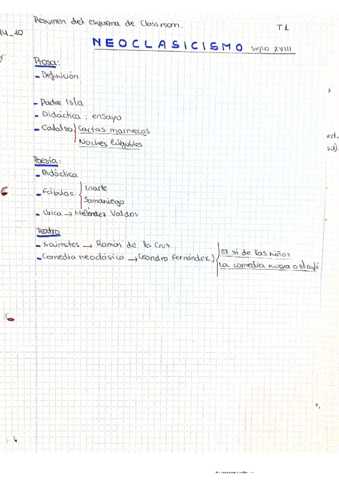 Resumen del esquema de Classroom.
T1
14_10
NEOCLASICISMO siglo XVIII
Prosa:
- Definición
- Padre Isla
- Didáctica: ensayo
- Cadalso Cartas marruecas
Noches lúgubres
Poesía:
- Didáctica
- Fábulas Iriarte
Samaniego
- Lírica → Meléndez Valdés
Teatro
- Sainetes → Ramón de la Cruz
- Comedia neoclásica → (Leandro Fernández) El sí de las niñas
La comedia nueva o el café